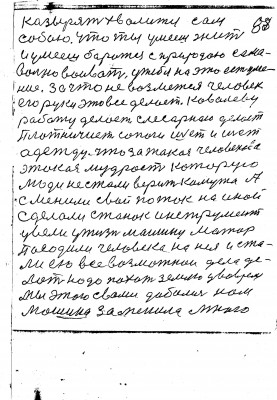 казырят хволити сам
собою, что ты умееш жит
и умееш баротся с природаю сама
волно воиват, ужбы на это есть уме
ние. За что не возметса человек
его руки это все делает. Ковалеву
работу делает слесарнаю делает
плотничиет сопоги шует и шует
адежду. что за такая человекова
этокая мудраст которую
люди нестали верит комута А
сменили свой поток на иной
сделали станок инструмент
увели утизт машину матар
Посодили человека на ней и ста-
ли ею всевозможнаи дела де-
лат надо пахат землю уваврем
Мы этого свами дабалис нам
Машина заменила много